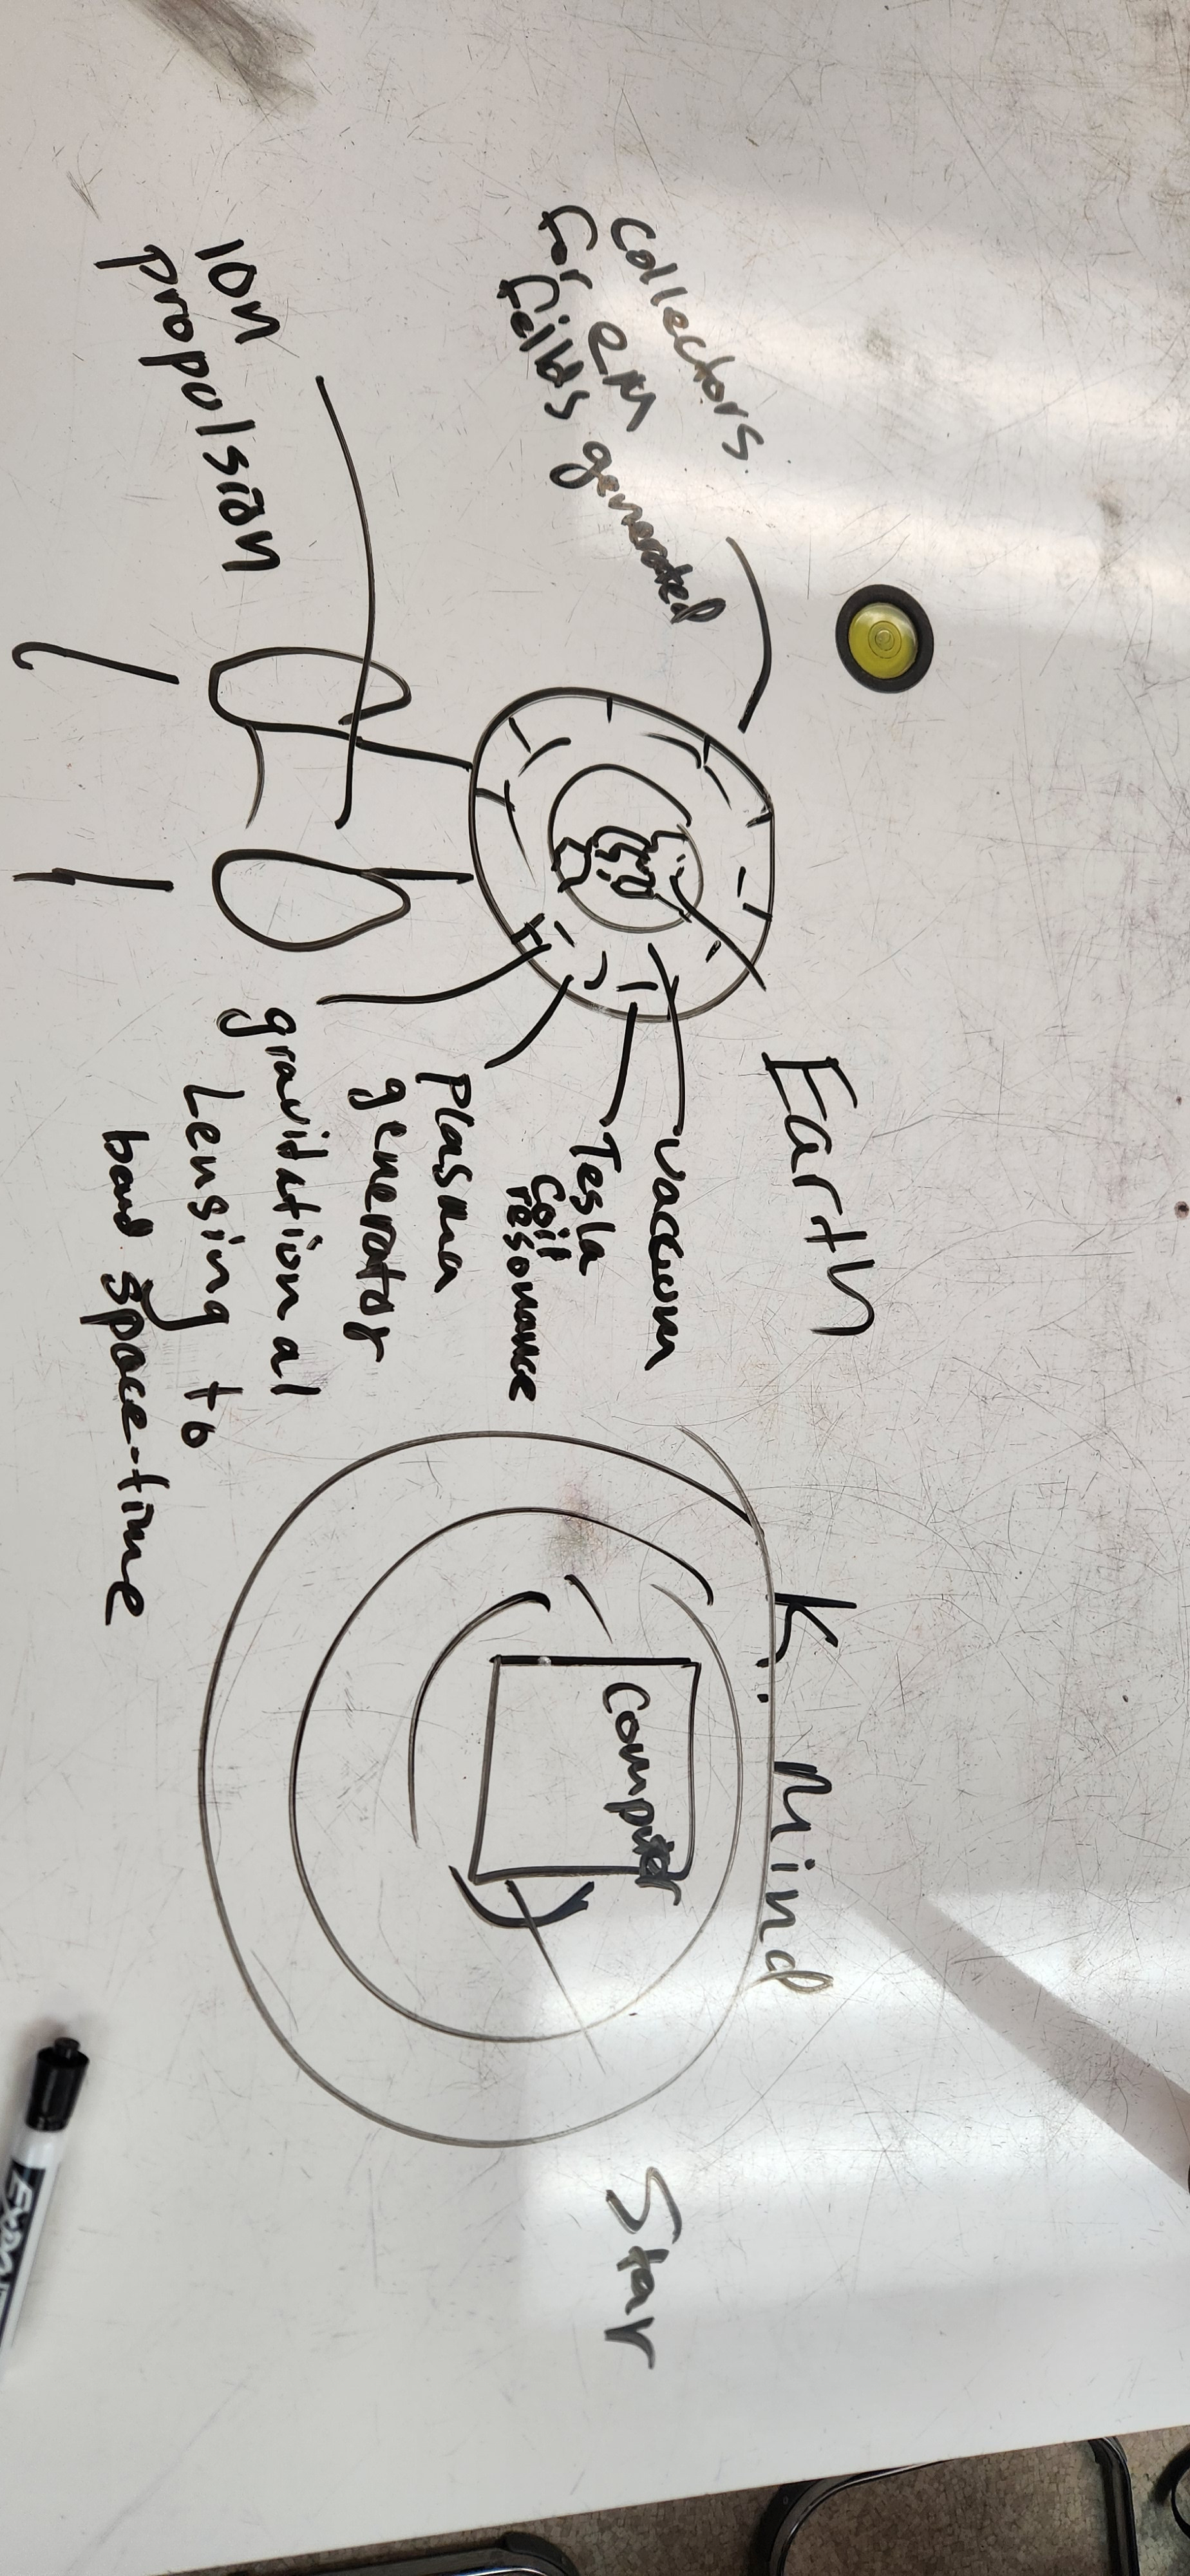 Collectors
for EM
feilds generated
Ion
propulsion
Earth
vaccum
Tesla
coil
resonance
Plasma
generator
gravitational
Lensing to
bend space-time
K.. Mind
Computer
Star
EXPO